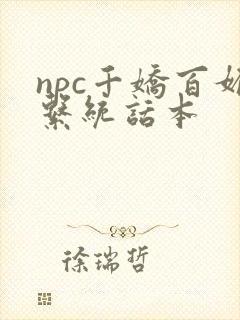 npc千嬌百媚
繫統話本
徐瑞哲